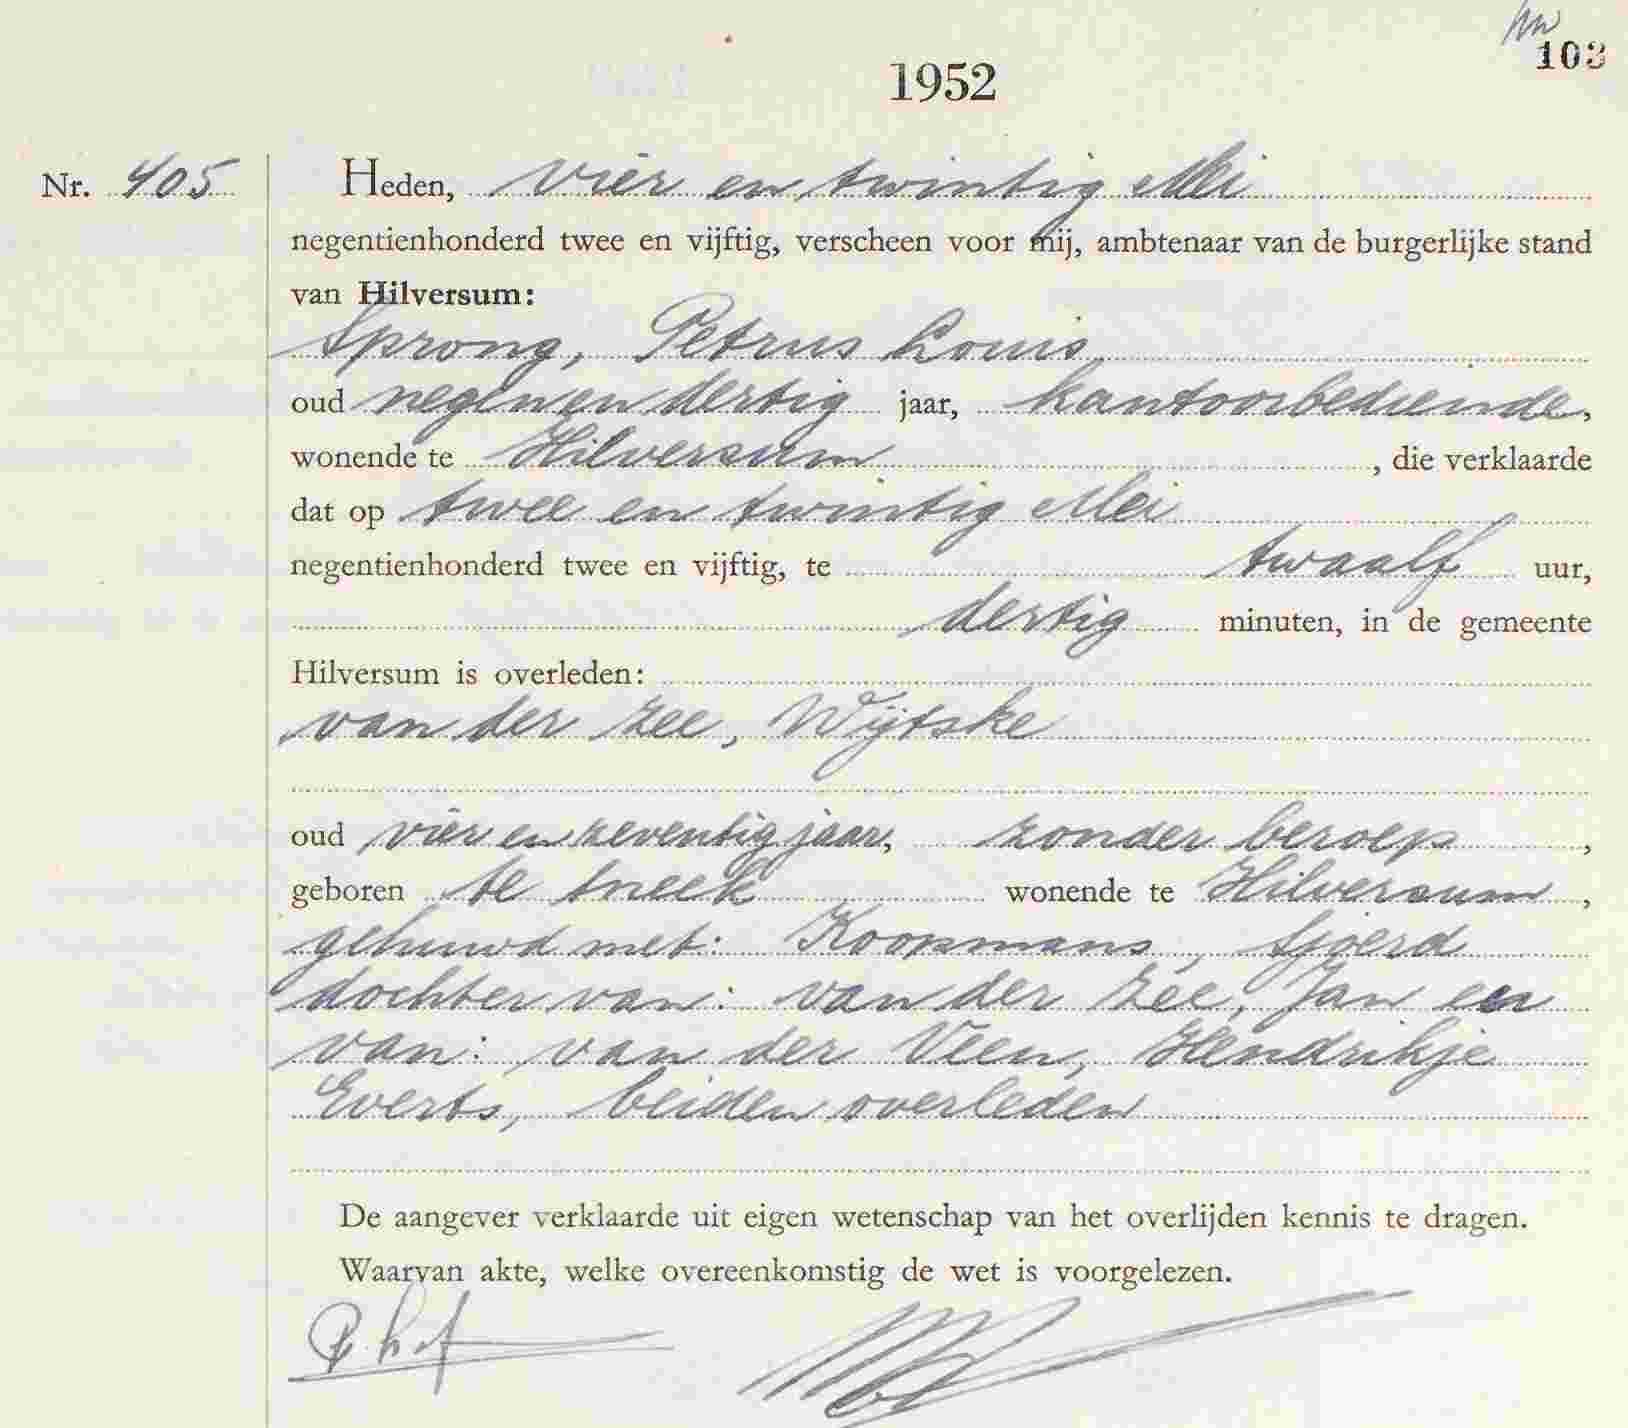 103
1952
Nr. 405
Heden, vier en twintig Mei
negentienhonderd twee en vijftig, verscheen voor mij, ambtenaar van de burgerlijke stand
van Hilversum:
Sprong, Petrus Louis
oud negen en dertig jaar, kantoorbediende,
wonende te Hilversum, die verklaarde
dat op twee en twintig Mei
negentienhonderd twee en vijftig, te twaalf uur,
dertig minuten, in de gemeente
Hilversum is overleden:
van der Zee, Wijtske
oud vier en zeventig jaar, zonder beroep,
geboren te Sneek wonende te Hilversum,
gehuwd met: Koopmans, Sjoerd
dochter van: van der Zee, Jan en
van: van der Veen, Hendrikje
Everts, beiden overleden
De aangever verklaarde uit eigen wetenschap van het overlijden kennis te dragen.
Waarvan akte, welke overeenkomstig de wet is voorgelezen.